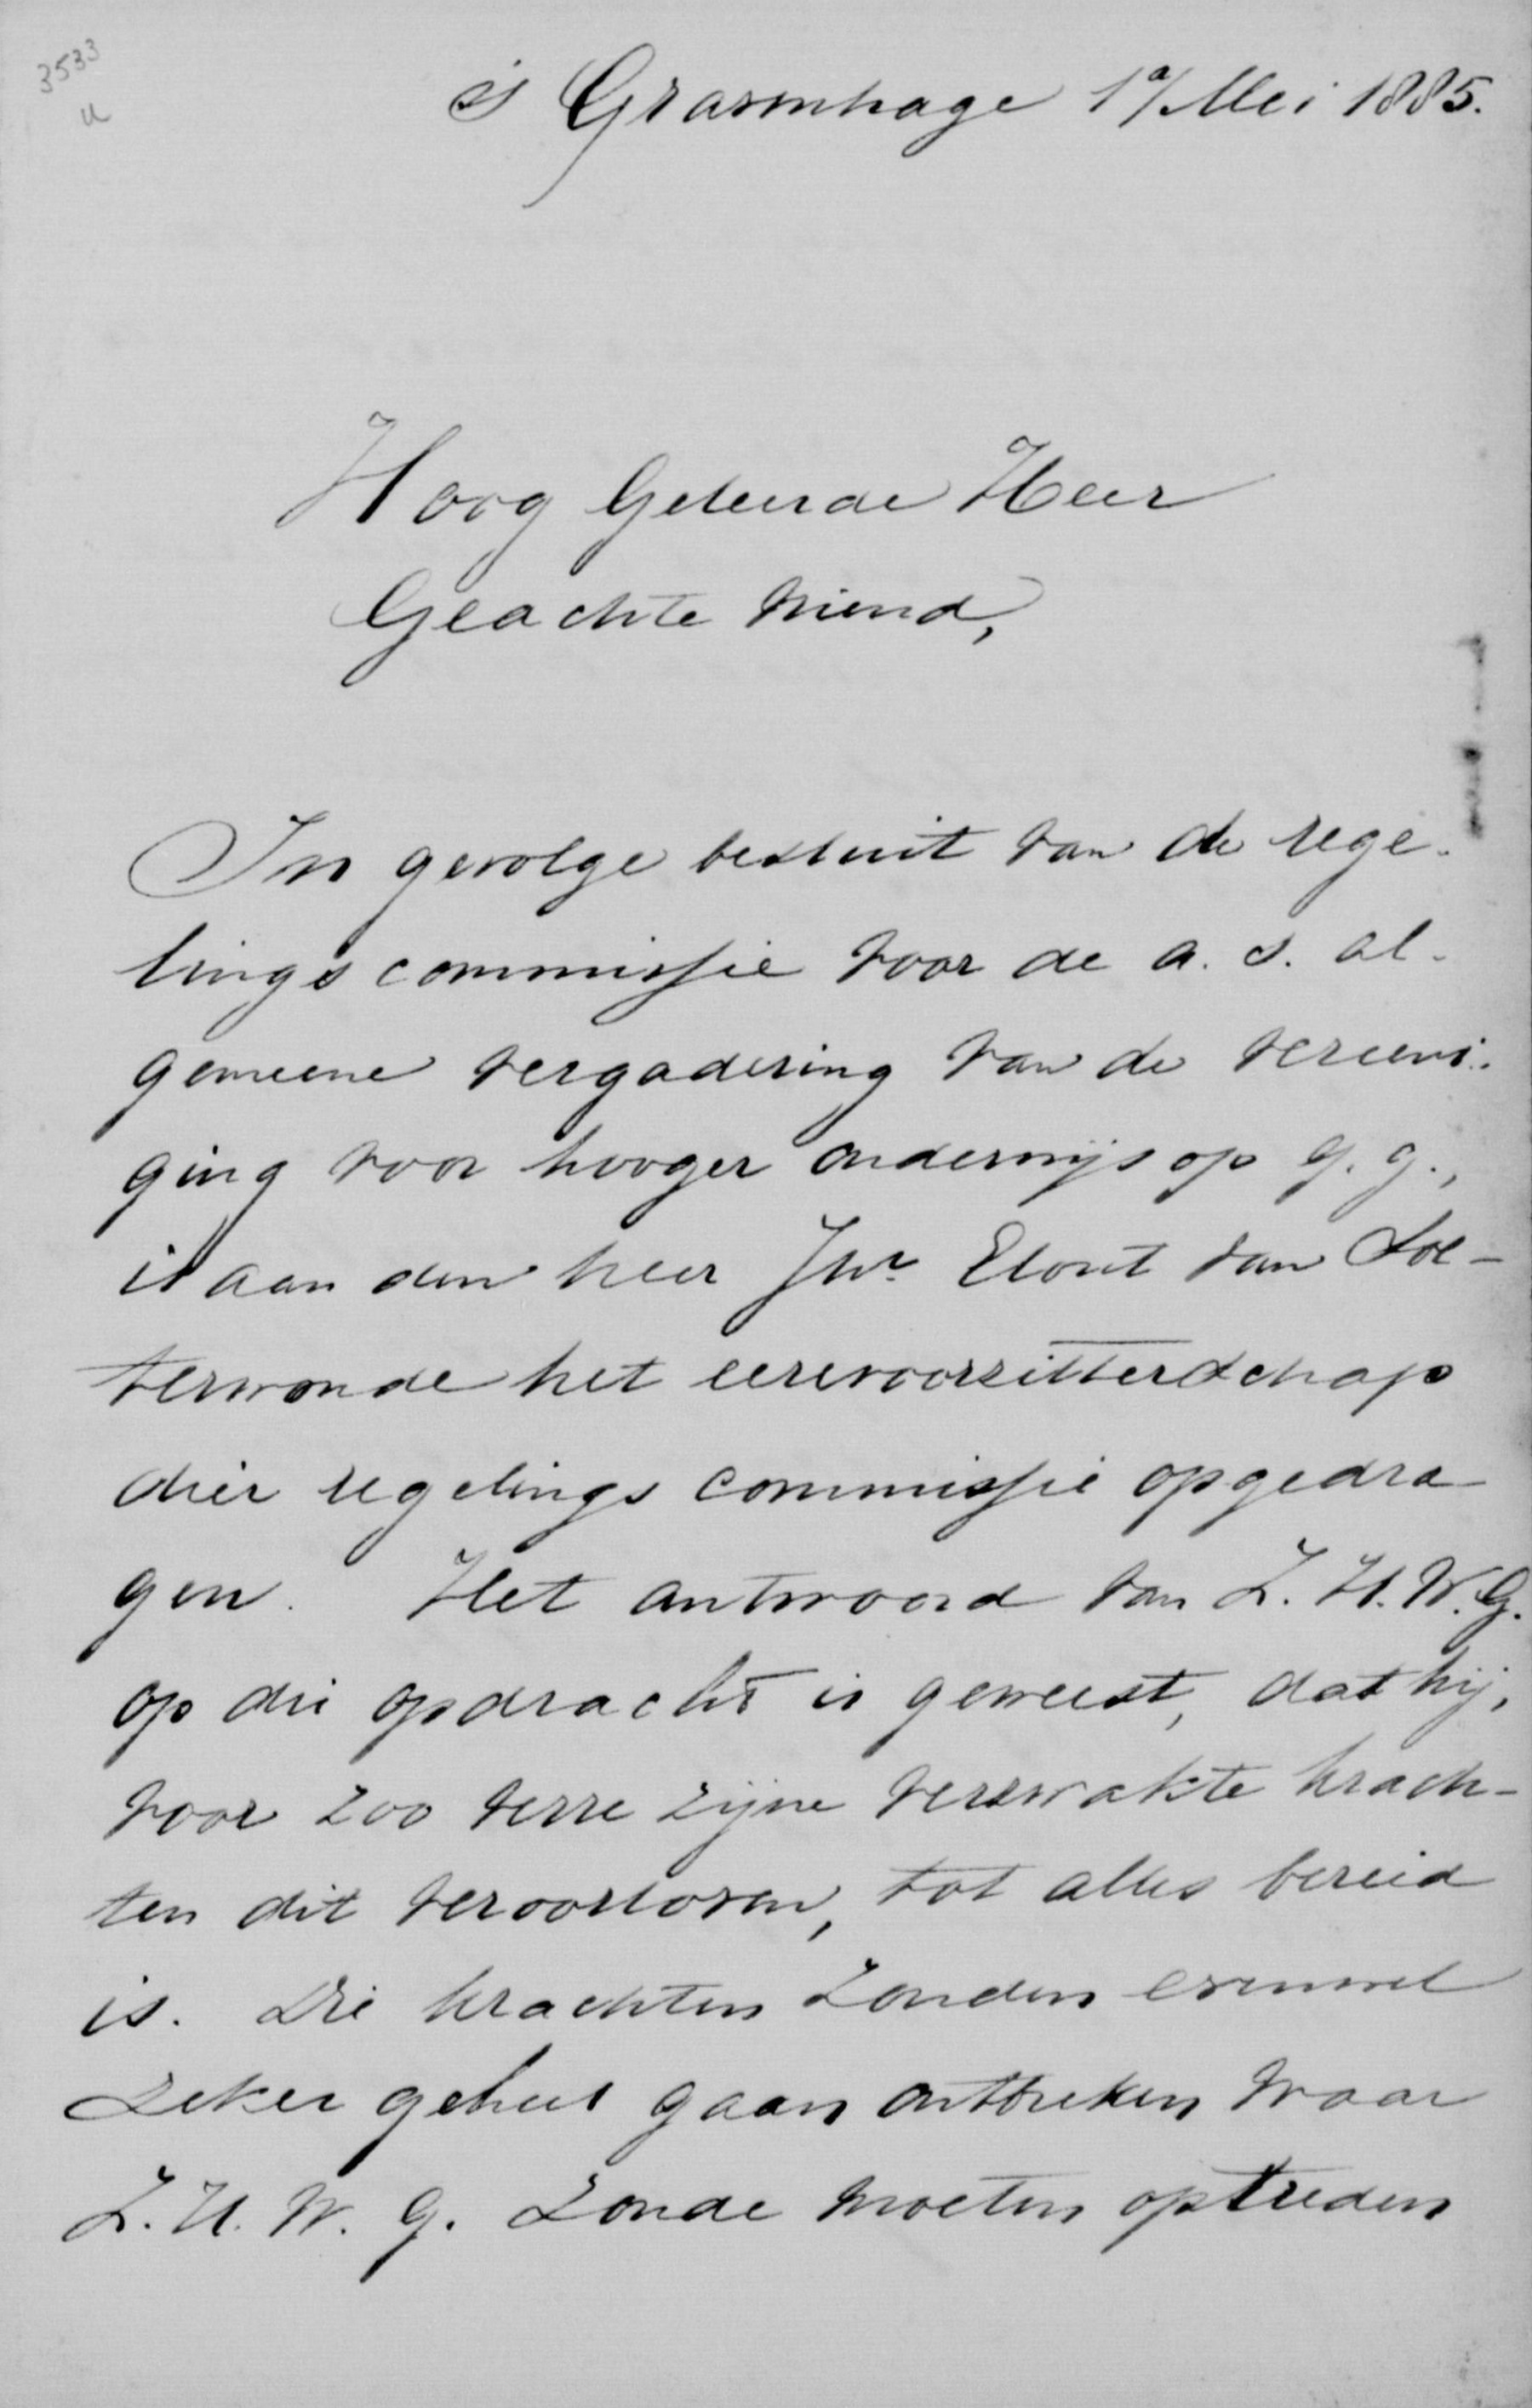 3533
u
's Gravenhage 1a/Mei 1885.
Hoog Geleerde Heer
Geachte Vriend,
In gevolge besluit van de rege-
lings commissie voor de a. s. al-
gemeene vergadering van de vereeni-
ging voor hooger onderwijs op G. g.,
is aan den heer Jhr. Elout van Soe-
terwoude het eerevoorzitterschap
dier regelings commissie opgedra-
gen. Het antwoord van Z. H. W. G.
op die opdracht is geweest, dat hij,
voor zoo verre zijne verzwakte krach-
ten dit veroorloven, tot alles bereid
is. Die krachten zouden evenwel
zeker geheel gaan ontbreken waar
Z. H. W. G. zoude moeten optreden